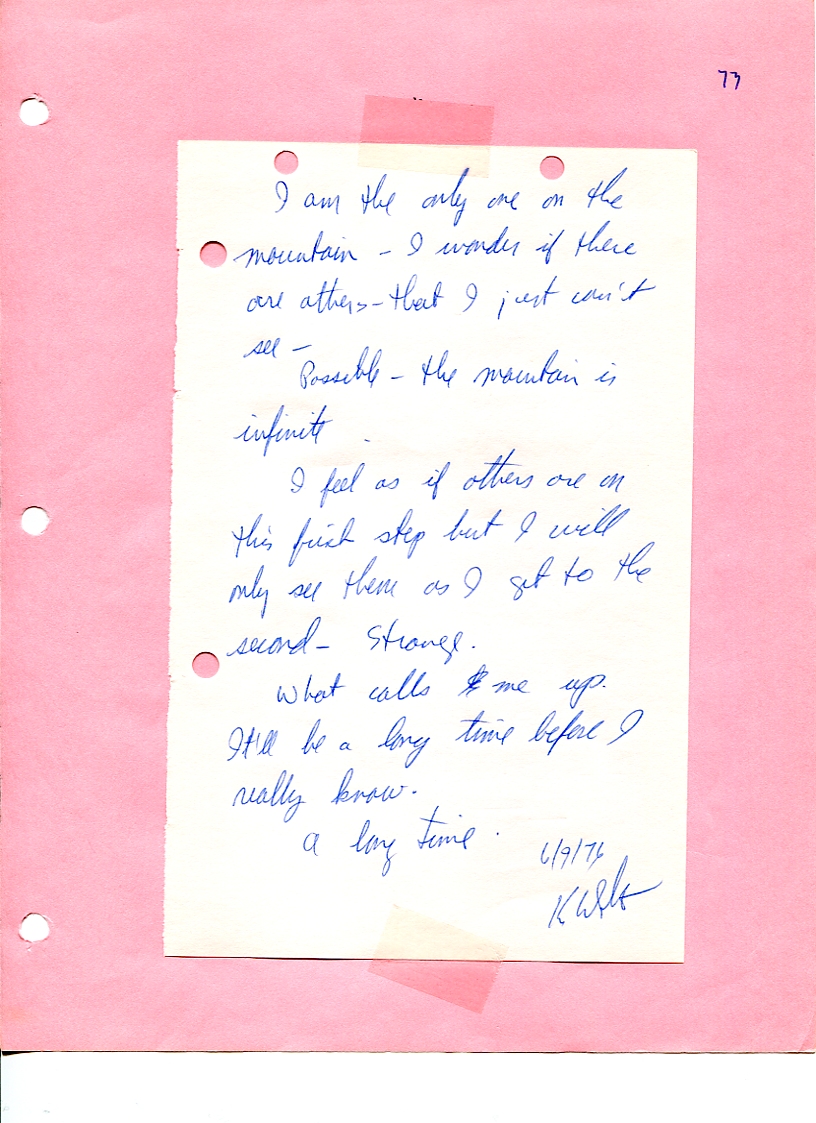 73
I am the only one on the
mountain - I wonder if there
are others - that I just can't
see -
Possible - the mountain is
infinite.
I feel as if others are on
this first step but I will
only see them as I get to the
second - Strange.
What calls me up.
It'll be a long time before I
really know.
A long time.
6/9/76